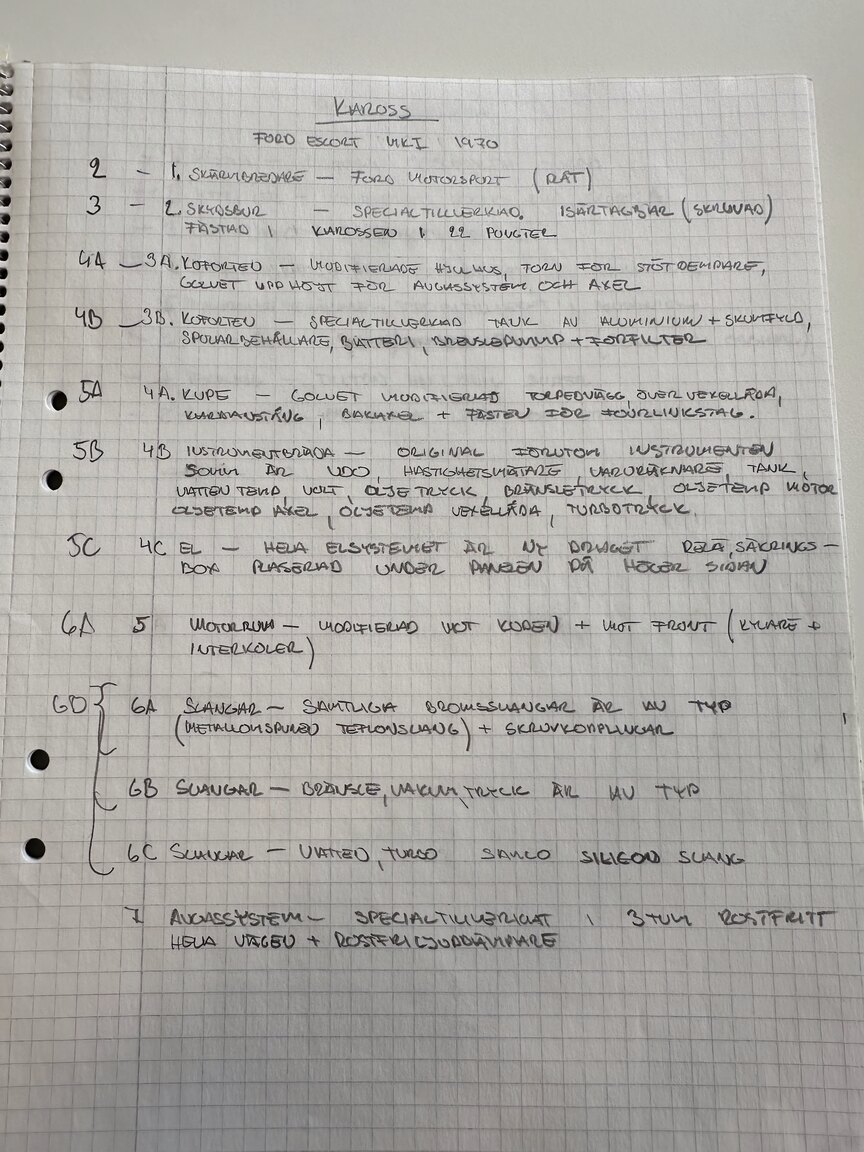 KAROSS
FORD ESCORT MKI 1970
2 – 1. SKÄRMBREDARE – FORD MOTORSPORT (RÅT)
3 – 2. SKYDSBUR – SPECIALTILLVERKAD. ISÄRTAGBAR (SKRUVAD)
FÄSTAD I KAROSSEN I 22 PUNGTER
4A – 3A. KOFORTEN – MODIFIERADE HJULHUS, TORN FÖR STÖTDEMPARE,
GOLVET UPPHÖJT FÖR AVGASSYSTEM OCH AXEL
4B – 3B. KOFORTEN – SPECIALTILLVERKAD TANK AV ALUMINIUM + SKUMFYLD,
SPOLARBEHÅLLARE, BATTERI, BRENSLEPUMP + FÖRFILTER
5A 4A. KUPE – GOLVET MODIFIERAD TORPEDVÄGG, ÖVER VEXELLÅDA,
KARDANSTÅNG, BAKAXEL + FÄSTEN FÖR FOURLINKSTAG.
5B 4B INSTRUMENTBRÄDA – ORIGINAL FÖRUTOM INSTRUMENTEN
SOM ÄR VDO, HASTIGHETSMÄTARE, VARVRÄKNARE, TANK,
VATTEN TEMP, VOLT, OLJE TRYCK, BRÄNSLETRYCK, OLJETEMP MOTOR
OLJETEMP AXEL, OLJETEMP VEXELLÅDA, TURBOTRYCK.
5C 4C EL – HELA ELSYSTEMET ÄR NY DRAGET RELÄ, SÄKRINGS –
BOX PLASERAD UNDER PANELEN PÅ HÖGER SIDAN
6A 5 MOTORRUM – MODIFIERAD MOT KUPEN + MOT FRONT (KYLARE +
INTERKOLER)
6D { 6A SLANGAR – SAMTLIGA BROMSSLANGAR ÄR AV TYP
(METALLOMSPUNED TEFLONSLANG) + SKRUVKOPPLINGAR
6B SLANGAR – BRÄNSLE, VAKUM, TRYCK ÄR AV TYP
6C SLANGAR – VATTEN, TURBO SAMCO SILIGON SLANG
7 AVGASSYSTEM – SPECIALTILLVERKAT I 3 TUM ROSTFRITT
HELA VÄGEN + ROSTFRI LJUDDÄMPARE